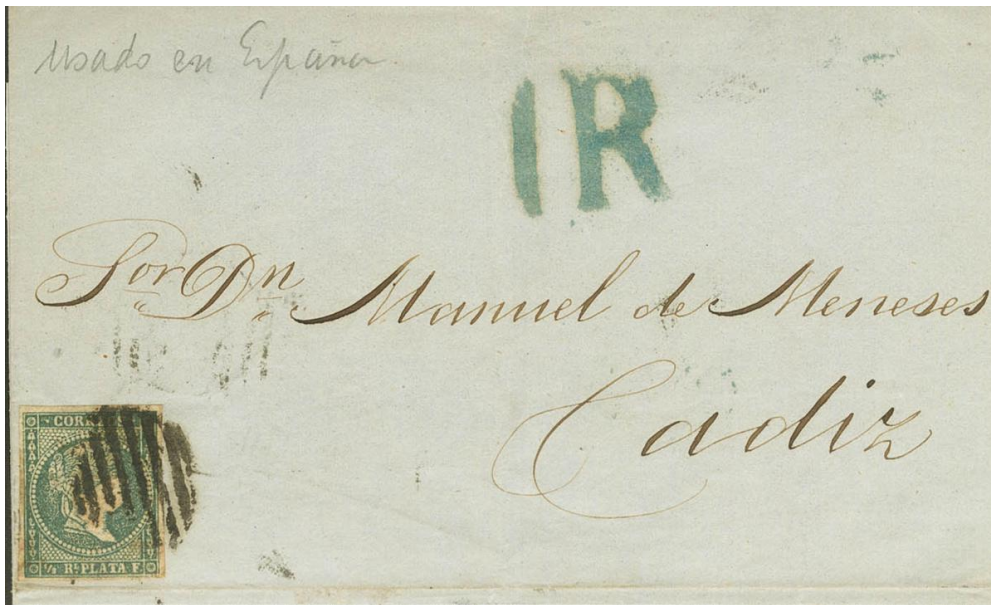 usado en España
1R
Sor Dn Manuel de Meneses
Cadiz
CORREOS
½ Rl PLATA F.